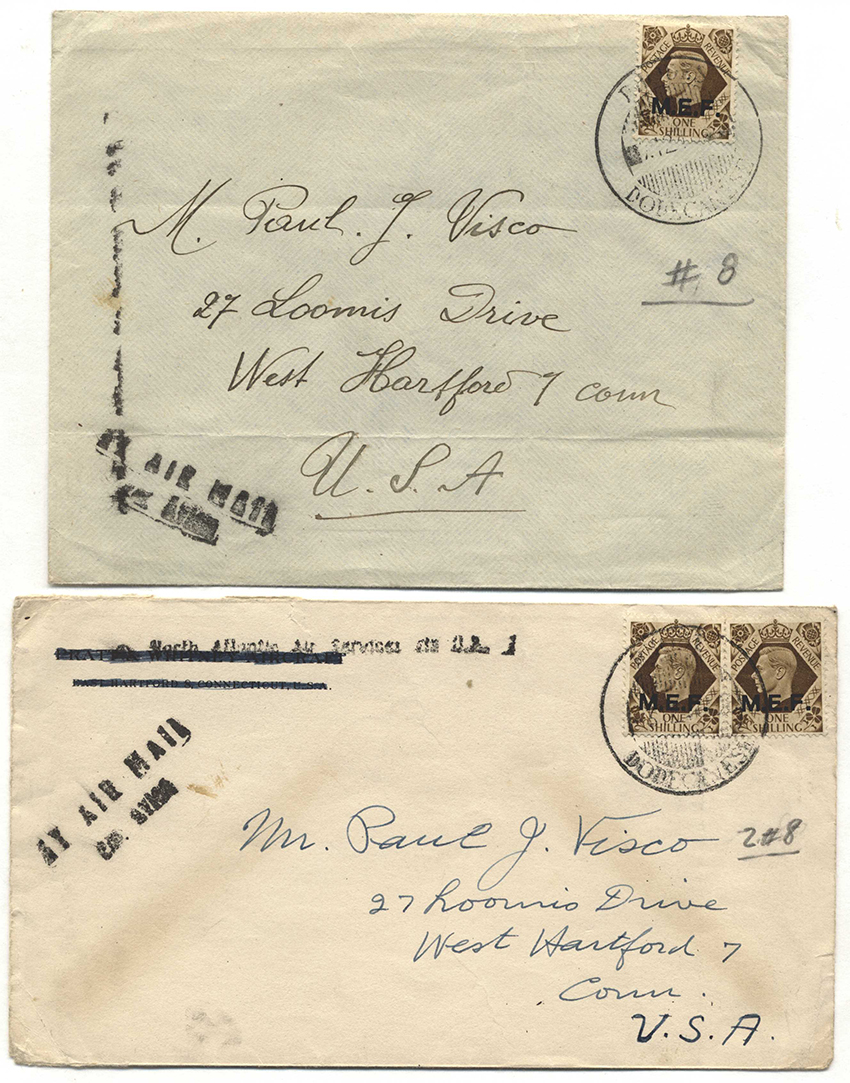 POSTAGE REVENUE
M.E.F.
ONE
SHILLING
DODECANESE
M. Paul. J. Visco
# 8
27 Loomis Drive
West Hartford 7 conn
U. S. A
BY AIR MAIL
PAR AVION
North Atlantic Air Services
PRATT & WHITNEY AIRCRAFT
EAST HARTFORD 8, CONNECTICUT, U.S.A.
POSTAGE REVENUE
M.E.F.
ONE
SHILLING
POSTAGE REVENUE
M.E.F.
ONE
SHILLING
DODECANESE
BY AIR MAIL
Mr. Paul J. Visco
2#8
27 Loomis Drive
West Hartford 7
Conn.
U.S.A.